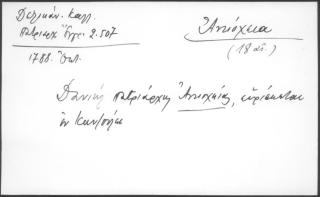 Δελικάν. Καλλ.
Πατριαρχ. Ἔγγρ. 2.507
1788. Ὀκτ.
Ἀντιόχεια
(18 αἰ.)
Δανιήλ πατριάρχης Ἀντιοχείας, εὑρίσκεται
ἐν Κων/πόλει